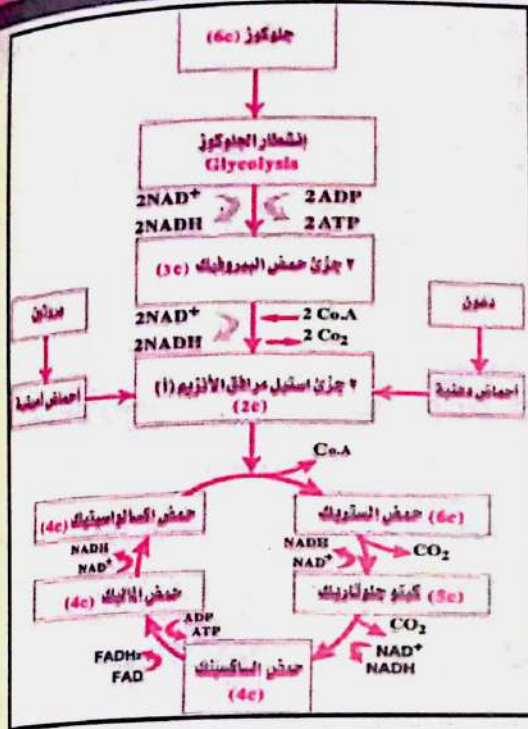 جلوكوز (6c)
إنشطار الجلوكوز
Glycolysis
2NAD⁺ 2ADP
2NADH 2ATP
٢ جزئ حمض البيروفيك (3c)
بروتين
دهون
2NAD⁺ 2 Co.A
2NADH 2 Co₂
أحماض أمينية
٢ جزئ استيل مرافق الأنزيم (أ)
(2c)
أحماض دهنية
Co.A
حمض اكسالواسيتيك (4c)
حمض الستريك (6c)
NADH
NAD⁺
NADH
NAD⁺
CO₂
حمض الماليك (4c)
كيتو جلوتاريك (5c)
ADP
ATP
CO₂
FADH₂
FAD
حمض الساكسينك
(4c)
NAD⁺
NADH